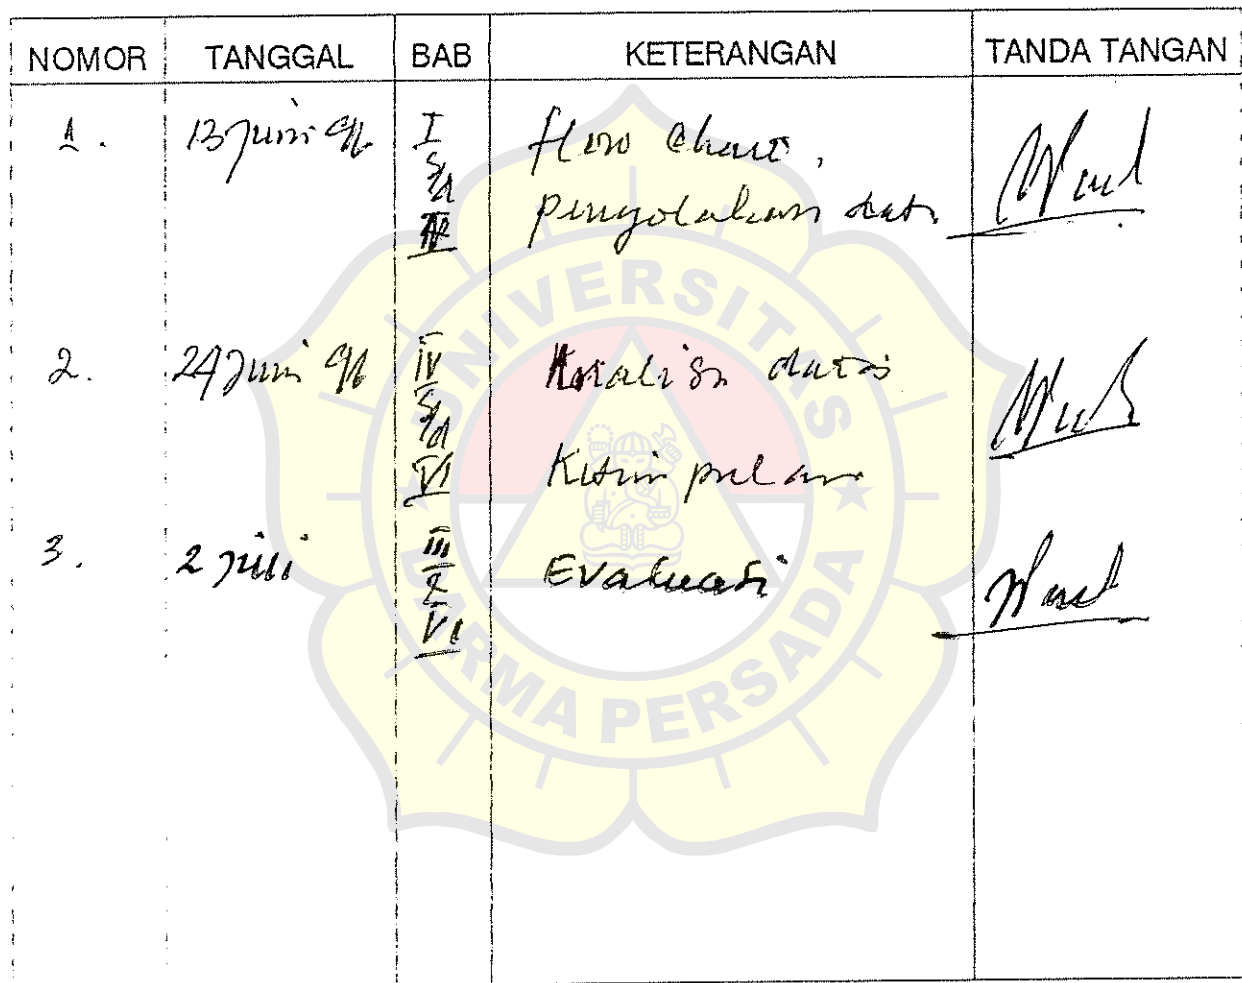 NOMOR TANGGAL BAB KETERANGAN TANDA TANGAN
1. 13 Juni 96 I flow chart,
s/d pengolahan data
IV
2. 24 Juni 96 IV Analisa data
s/d
VI Kesimpulan
3. 2 Juli III Evaluasi
VI
UNIVERSITAS
DARMA PERSADA